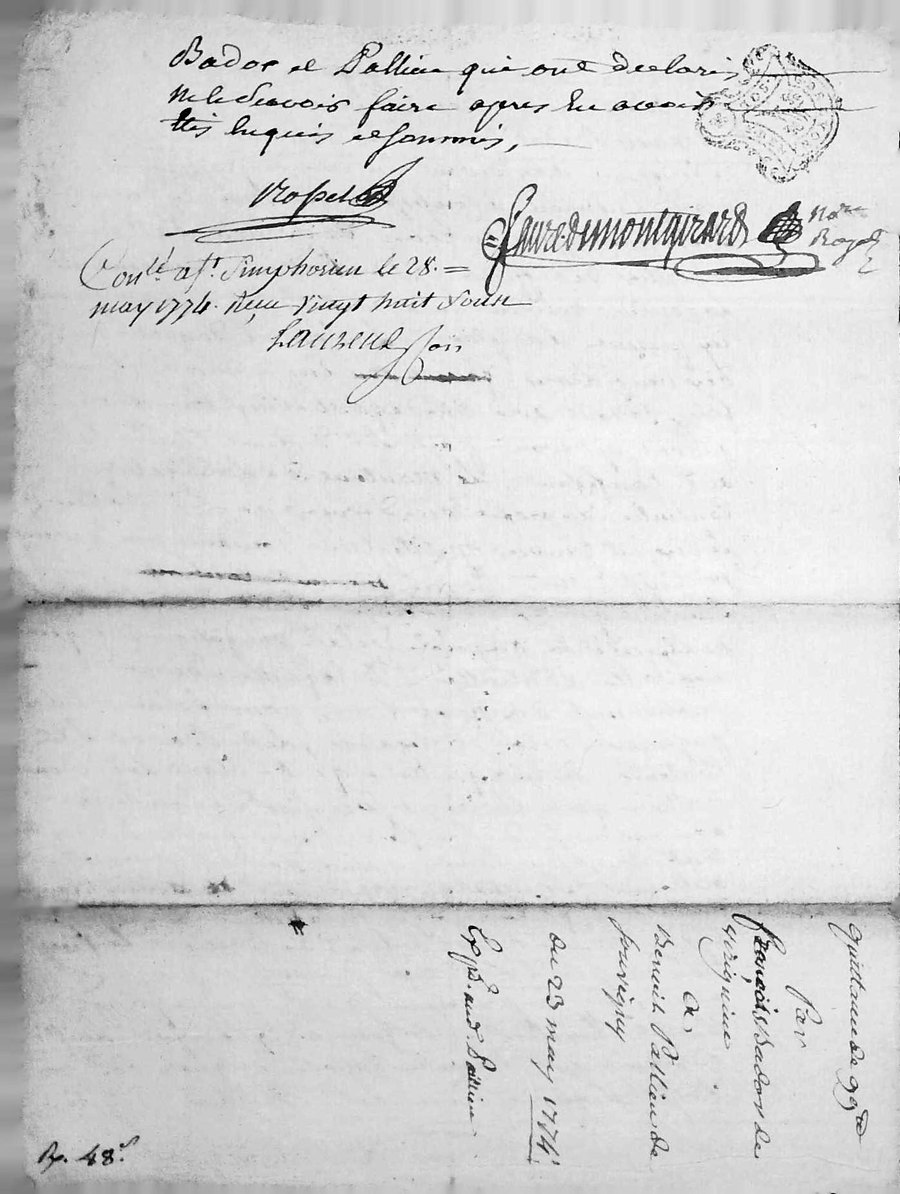 Bador et Pallieu qui ont declarés
ne le Scavois faire apres En avoir
Etés Enquis et Sommés,
Rospet
Fauredemontgirard No.re
Royal
Con.lé a S.t Simphorien le 28. =
may 1774. Reçu Vingt huit Sous
Laurenson
quittance de 99
Par
françois Bador de
Verigneu
a
Benoit Pallieu de
Souvigny
du 23 may 1774
Exp.é aud. Pallieu
R. 48.s